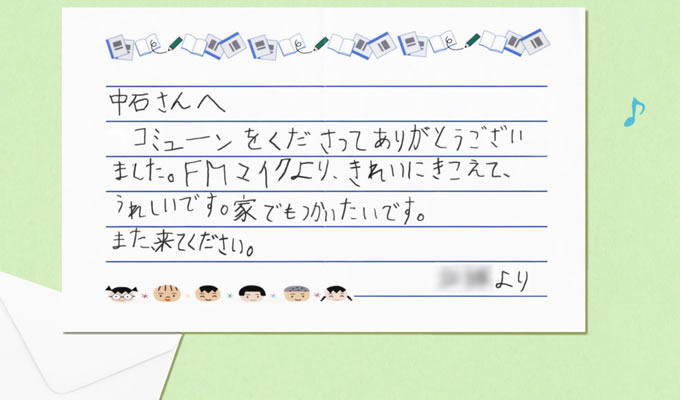 中石さんへ
コミューンをくださってありがとうござい
ました。FMマイクより、きれいにきこえて、
うれしいです。家でもつかいたいです。
また来てください。
より